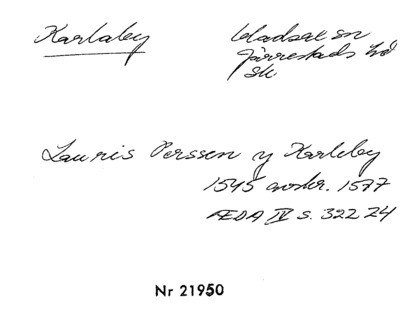 Karlaby Vladsax sn
Järrestads hd
Sk.
Lauris Perssen y Karleby
1545 avskr. 1577
ÆDA IV s. 322 24
Nr 21950